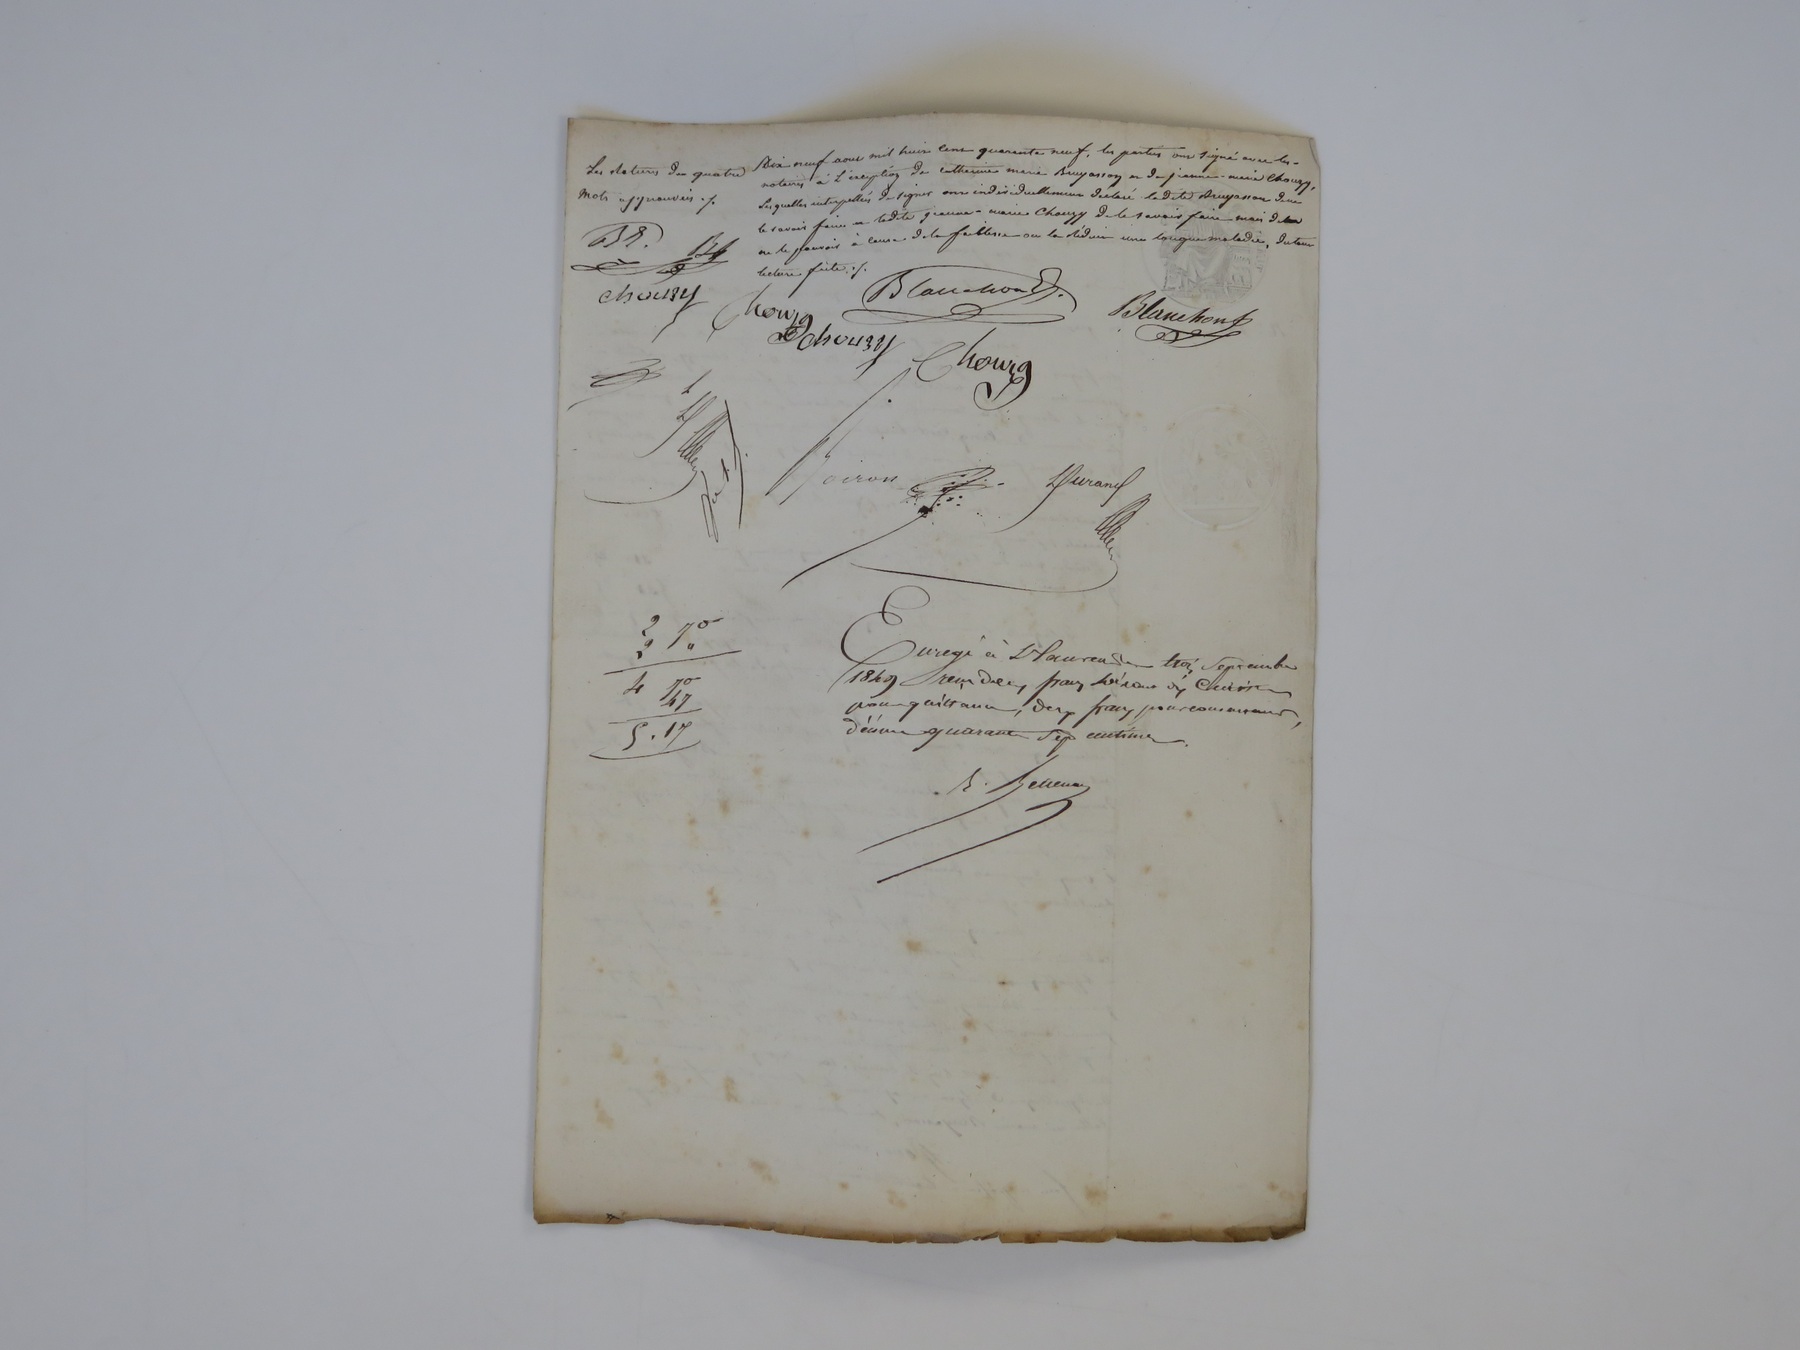 Les ratures de quatre
mots approuvées ./.
Dix neuf aout mil huit cent quarante neuf, les parties ont signé avec les
notaires à L'exception de catherine marie Bruyasson et de jeanne-marie Chouzy,
Lesquelles interpellées de signer ont individuellement déclaré ladite Bruyasson de ne
le savoir faire et ladite jeanne-marie Chouzy de le savoir faire mais de
ne le pouvoir à cause de la faiblesse ou la réduit une longue maladie, du tout
lecture faite ./.
chouzy
Chouzy
Blanchon
Blanchon
chouzy
Chouzy
Durand
2 70
2 "
4 70
47
5.17
Enregé à St Laurent le trois Septembre
1849
pour quittance, deux francs pour
décime quarante sept centimes.